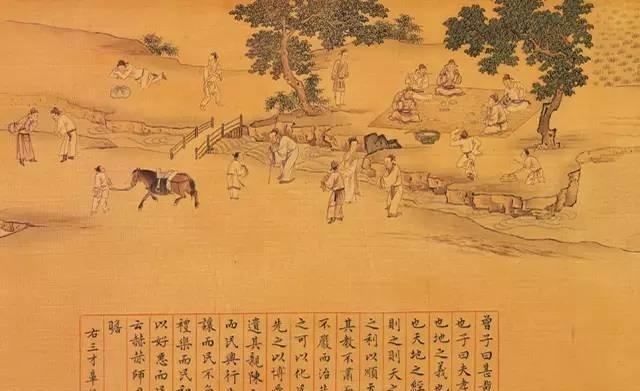 曾子曰甚
也子曰夫孝
也地之義也
也天地之經
則之則天之
之利以順天
其教不肅
不嚴而治
之可以化
先之以博
遺其親陳
而民興行
讓而民不
禮樂而民和
以好惡而
云赫赫師
瞻
右三才章